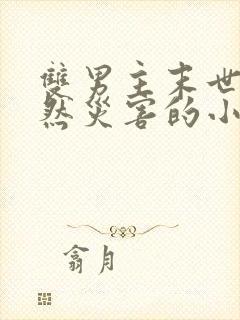 雙男主末世
然災害的小
翕月